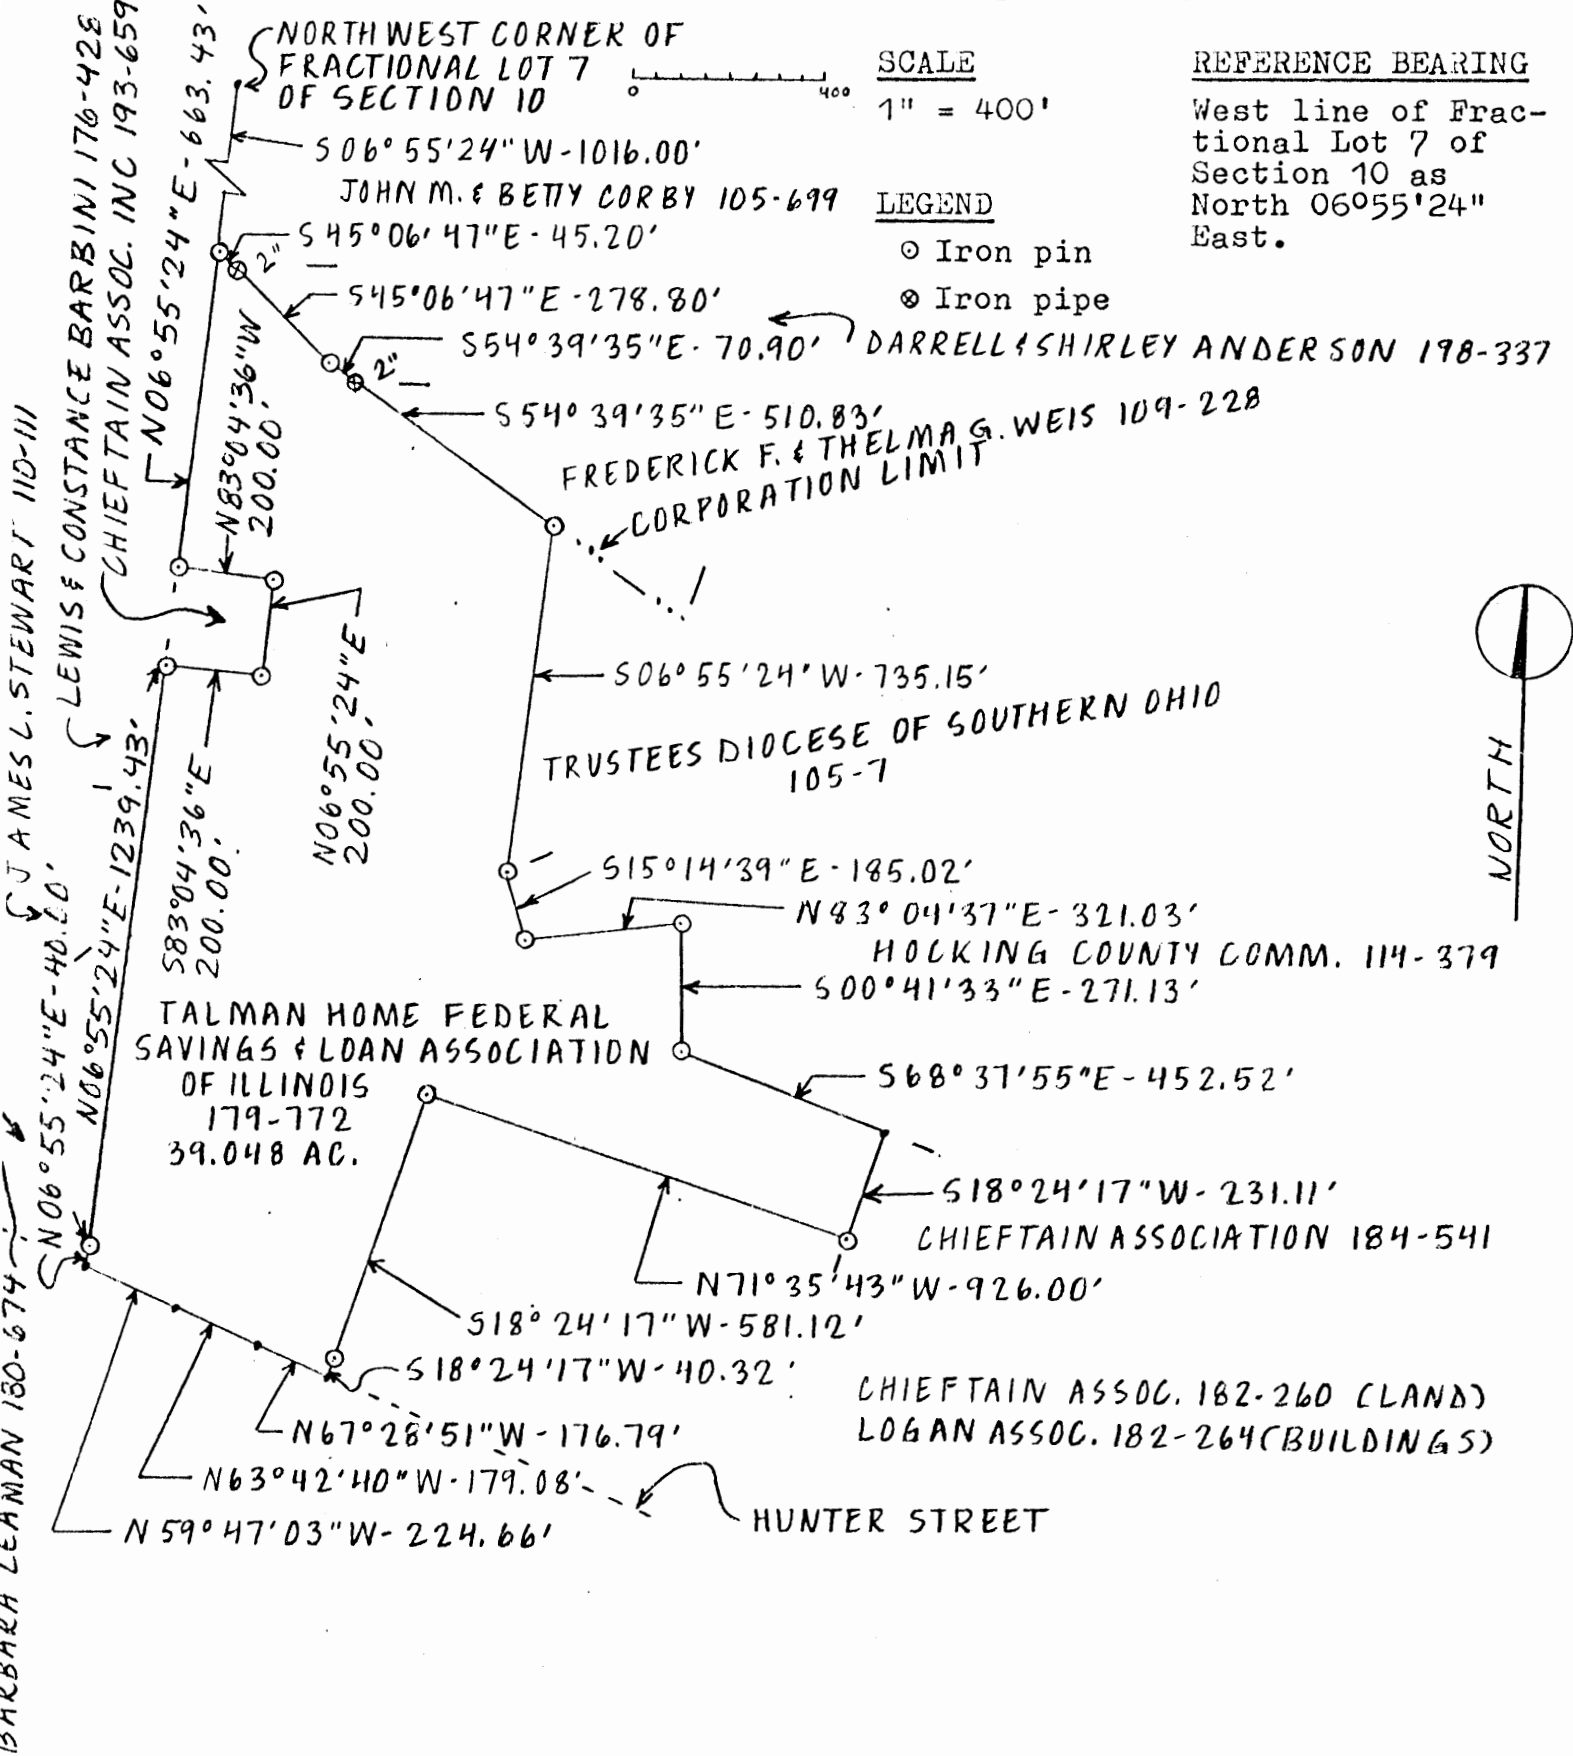 NORTHWEST CORNER OF
FRACTIONAL LOT 7
OF SECTION 10
0 400
SCALE
1" = 400'
REFERENCE BEARING
West line of Frac-
tional Lot 7 of
Section 10 as
North 06°55'24"
East.
LEGEND
⊙ Iron pin
⊗ Iron pipe
S06°55'24"W-1016.00'
JOHN M. & BETTY CORBY 105-699
S45°06'47"E-45.20'
2"
S45°06'47"E-278.80'
S54°39'35"E-70.90'
DARRELL & SHIRLEY ANDERSON 198-337
2"
S54°39'35"E-510.83'
FREDERICK F. & THELMA G. WEIS 109-228
CORPORATION LIMIT
JAMES L. STEWART 110-111
LEWIS & CONSTANCE BARBINI 176-428
CHIEFTAIN ASSOC. INC 193-659
N06°55'24"E-663.43'
N83°04'36"W
200.00'
N06°55'24"E
200.00'
S83°04'36"E
200.00'
N06°55'24"E-1239.43'
N06°55'24"E-40.00'
BARBARA LEAMAN 130-674
S06°55'24"W-735.15'
TRUSTEES DIOCESE OF SOUTHERN OHIO
105-7
NORTH
S15°14'39"E-185.02'
N83°04'37"E-321.03'
HOCKING COUNTY COMM. 114-379
S00°41'33"E-271.13'
TALMAN HOME FEDERAL
SAVINGS & LOAN ASSOCIATION
OF ILLINOIS
179-772
39.048 AC.
S68°37'55"E-452.52'
S18°24'17"W-231.11'
CHIEFTAIN ASSOCIATION 184-541
N71°35'43"W-926.00'
S18°24'17"W-581.12'
S18°24'17"W-40.32'
CHIEFTAIN ASSOC. 182-260 (LAND)
LOGAN ASSOC. 182-264 (BUILDINGS)
N67°28'51"W-176.79'
N63°42'40"W-179.08'
HUNTER STREET
N59°47'03"W-224.66'